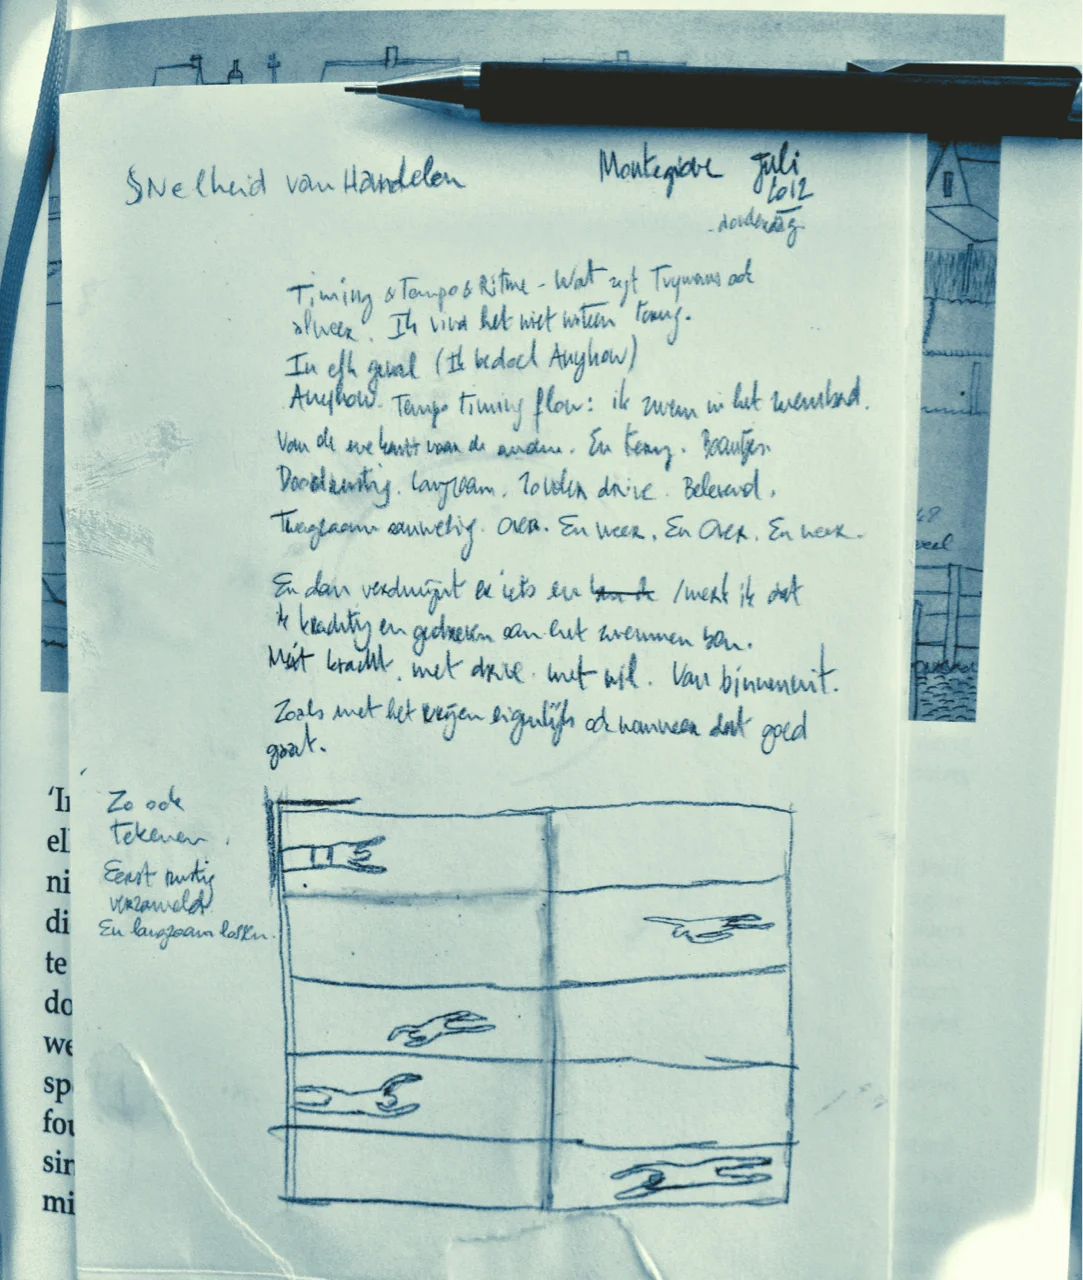 Snelheid van Handelen
Montegiove Juli
2012
donderdag
Timing & Tempo & Ritme - Wat zegt Tuymans ook
alweer. Ik vind het niet meteen terug.
In elk geval (Ik bedoel Anyhow)
Anyhow. Tempo timing flow: ik zwem in het zwembad.
Van de ene kant naar de andere. En terug. Baantjes
Doodrustig. Langzaam. Zonder drive. Belevend.
Traagzaam aanwezig. Over. En weer. En Over. En weer.
En dan verdwijnt er iets en /merk ik dat
ik krachtig en gedreven aan het zwemmen ben.
Met kracht, met drive. met wil. Van binnenuit.
Zoals met het eigenlijk ook wanneer dat goed
gaat.
Zo ook
tekenen.
Eerst rustig
verzameld.
En langzaam
'In
ell
ni
di
te
do
we
sp
fou
sin
mi